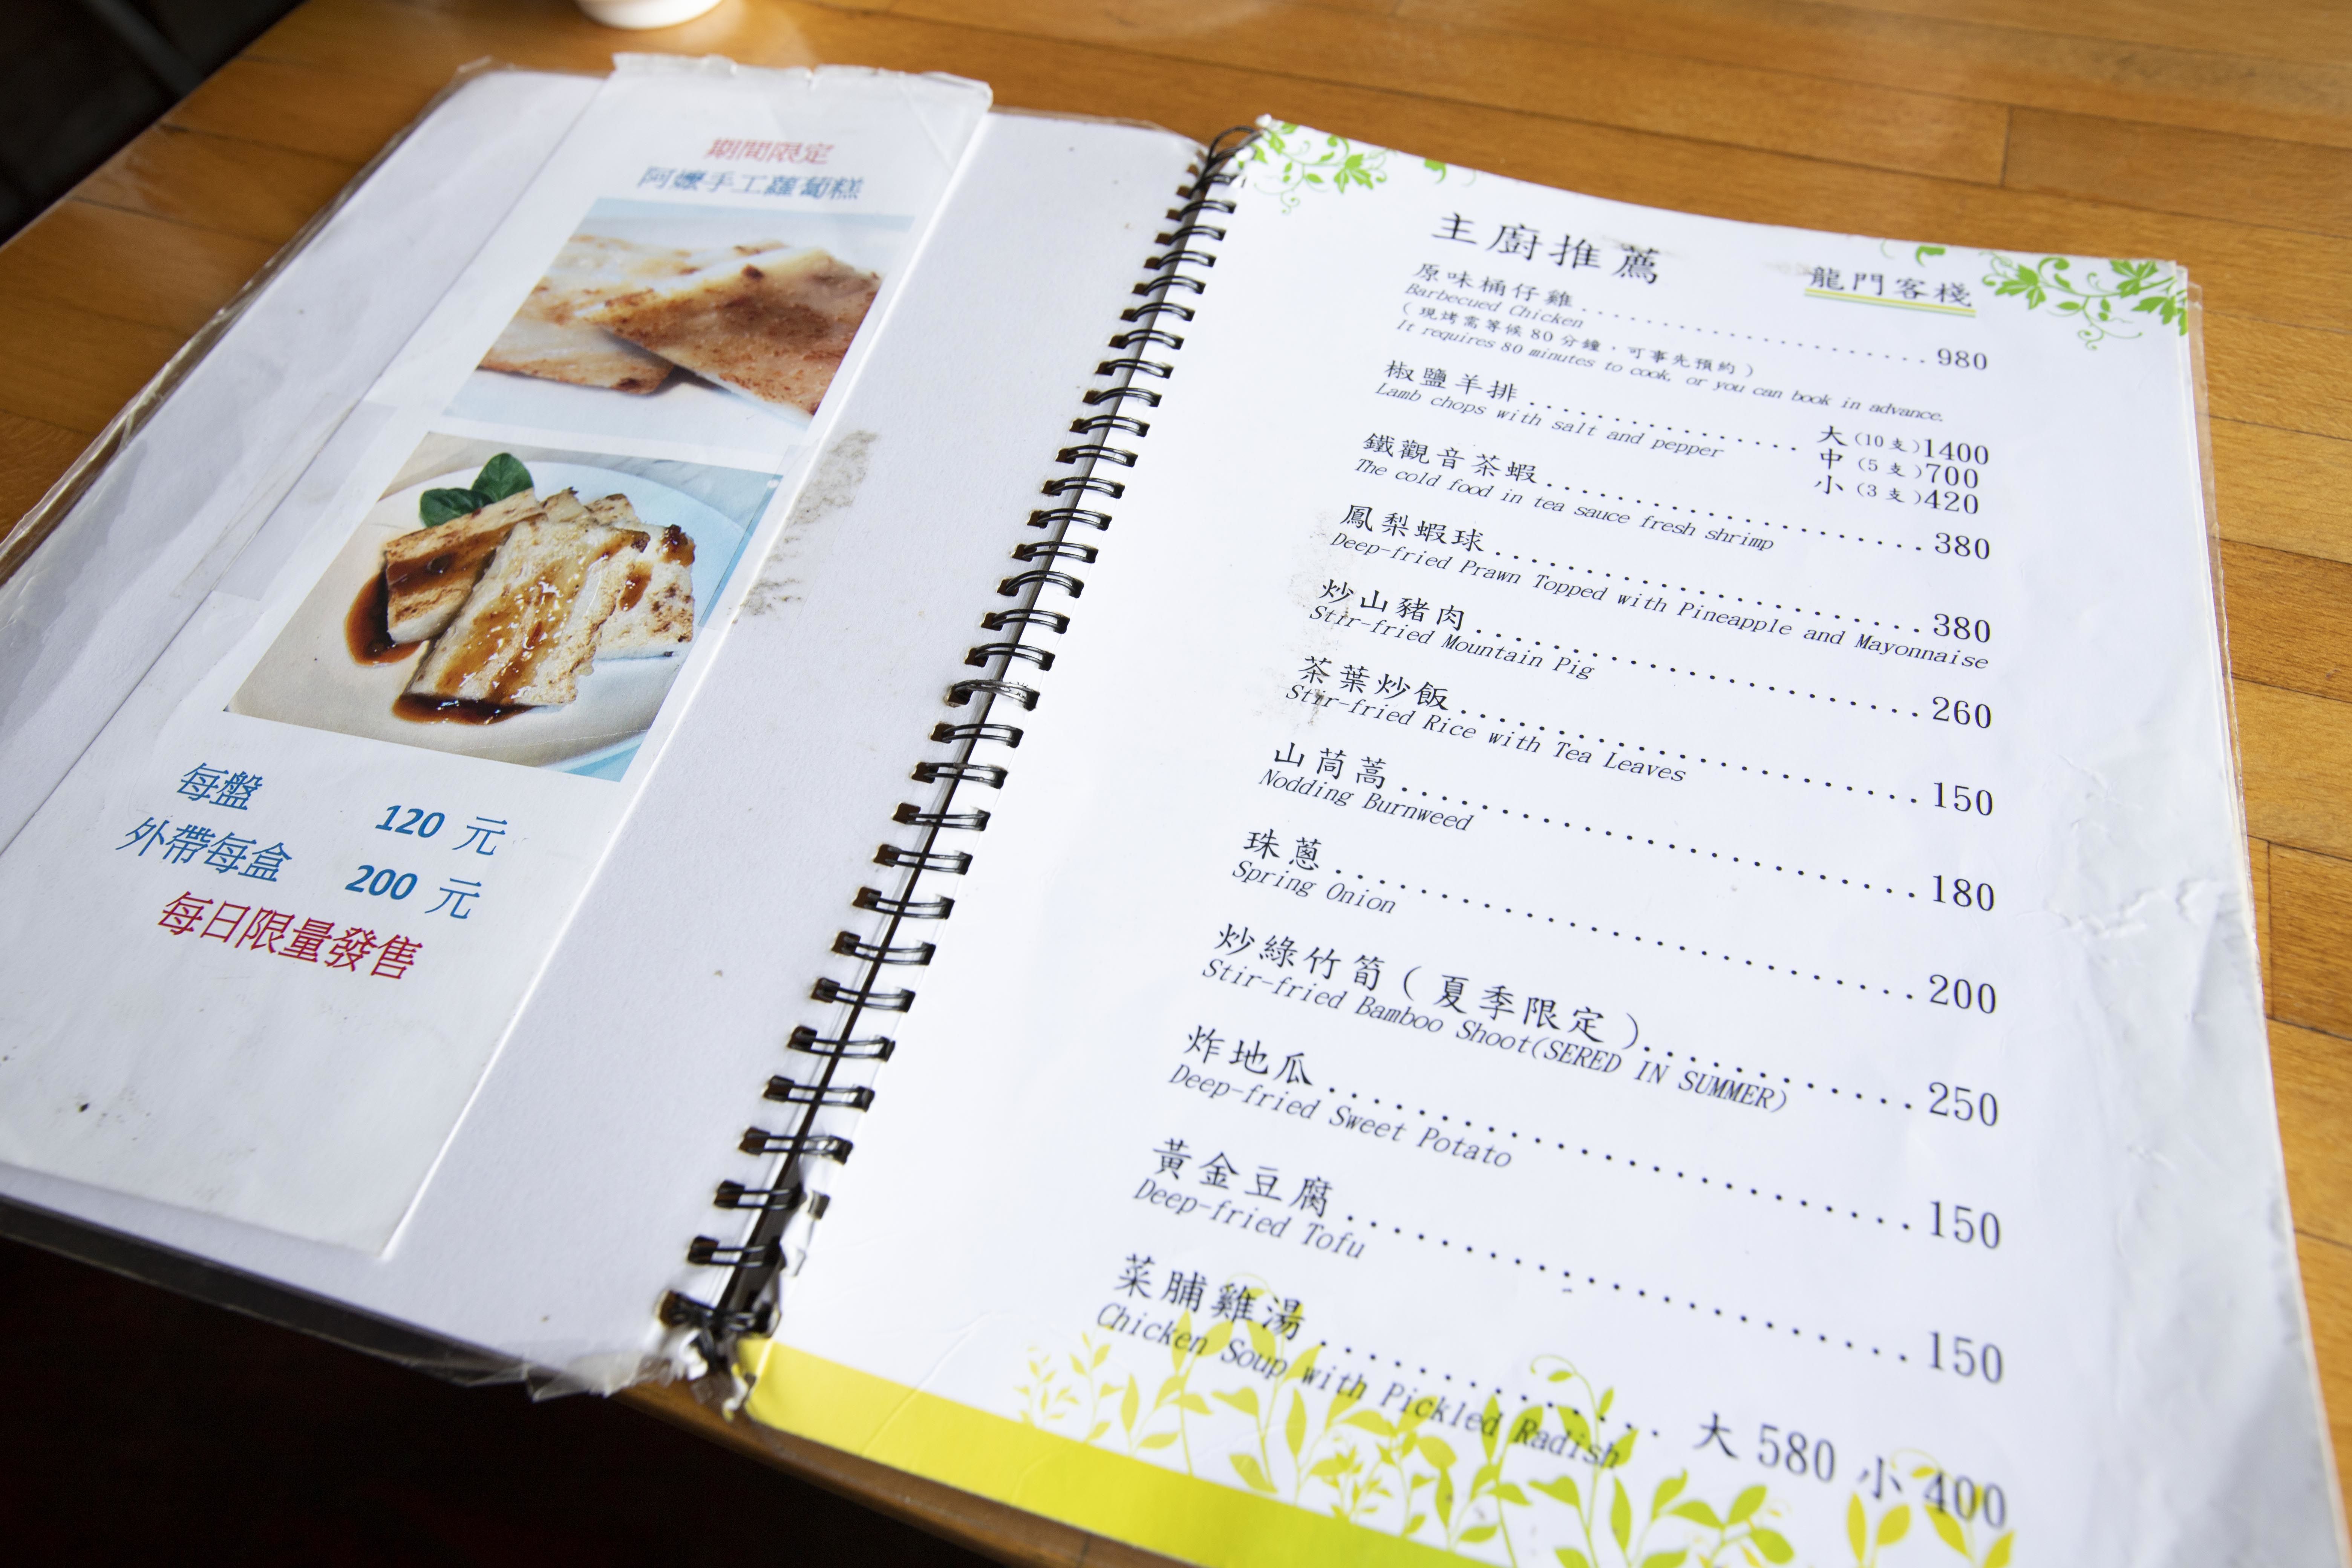 期間限定
阿嬤手工蘿蔔糕
每盤 120 元
外帶每盒 200 元
每日限量發售
主廚推薦
龍門客棧
原味桶仔雞 980
Barbecued Chicken
(現烤需等候80分鐘,可事先預約)
It requires 80 minutes to cook, or you can book in advance.
椒鹽羊排 大(10支)1400
Lamb chops with salt and pepper
中(5支)700
小(3支)420
鐵觀音茶蝦 380
The cold food in tea sauce fresh shrimp
鳳梨蝦球 380
Deep-fried Prawn Topped with Pineapple and Mayonnaise
炒山豬肉 260
Stir-fried Mountain Pig
茶葉炒飯 150
Stir-fried Rice with Tea Leaves
山茼蒿 180
Nodding Burnweed
珠蔥 200
Spring Onion
炒綠竹筍(夏季限定) 250
Stir-fried Bamboo Shoot(SERED IN SUMMER)
炸地瓜 150
Deep-fried Sweet Potato
黃金豆腐 150
Deep-fried Tofu
菜脯雞湯 大 580 小 400
Chicken Soup with Pickled Radish